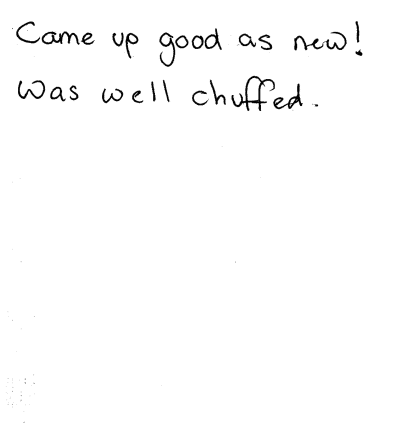 Came up good as new!
Was well chuffed.